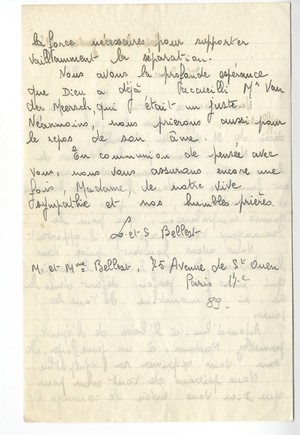 la force nécessaires pour supporter
vaillamment la séparation.
Nous avons la profonde espérance
que Dieu a déjà accueilli Mr Van
der Meersch, qui était un juste.
Néanmoins, nous prierons aussi pour
le repos de son âme.
En communion de pensée avec
vous, nous vous assurons encore une
fois, Madame, de notre vive
sympathie et nos humbles prières.
L et S Bellest
M. et Mme Bellest, 75 Avenue de St Ouen
Paris 17e